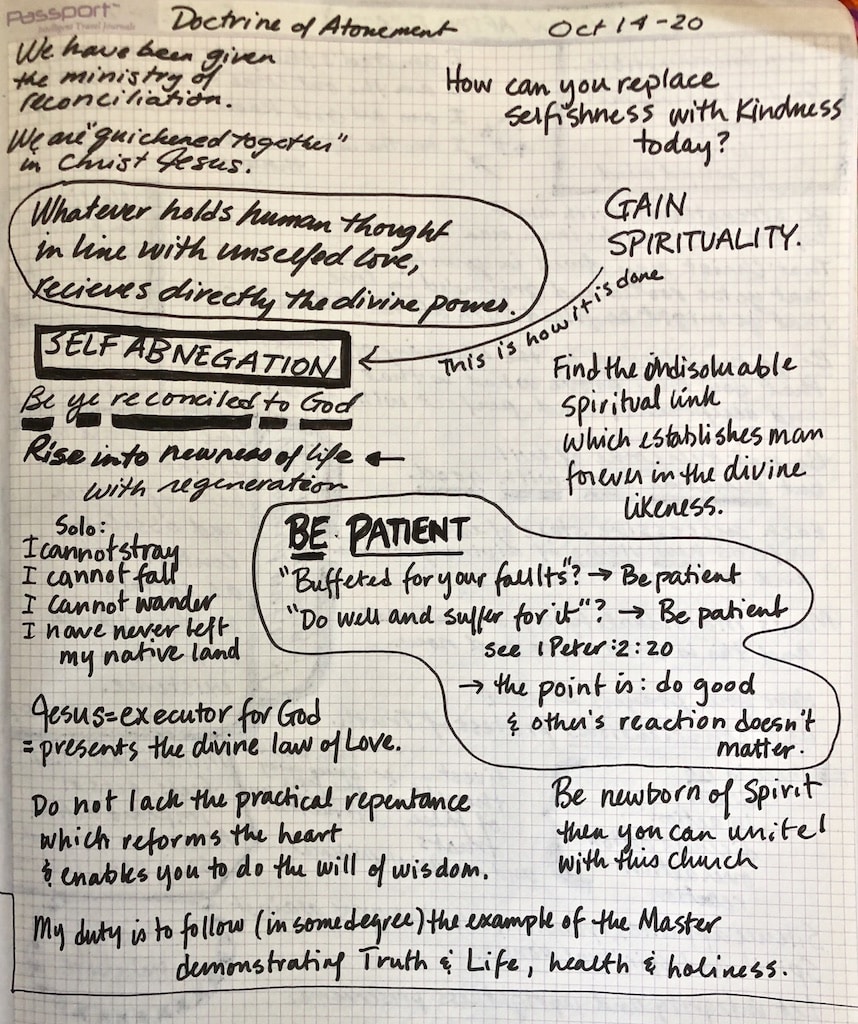 Passport
Doctrine of Atonement
Oct 14-20
We have been given
the ministry of
reconciliation.
We are "quickened together"
in Christ Jesus.
How can you replace
selfishness with Kindness
today?
Whatever holds human thought
in line with unselfed love,
recieves directly the divine power.
GAIN
SPIRITUALITY.
This is how it is done
SELF ABNEGATION
Be ye reconciled to God
Rise into newness of life ←
with regeneration
Find the indisoluable
spiritual link
which establishes man
forever in the divine
likeness.
Solo:
I cannot stray
I cannot fall
I cannot wander
I have never left
my native land
BE PATIENT
"Buffeted for your faults"? → Be patient
"Do well and suffer for it"? → Be patient
see 1 Peter:2:20
→ the point is: do good
& other's reaction doesn't
matter.
Jesus=executor for God
=presents the divine law of Love.
Do not lack the practical repentance
which reforms the heart
& enables you to do the will of wisdom.
Be newborn of Spirit
then you can unite
with this church
My duty is to follow (in some degree) the example of the Master
demonstrating Truth & Life, health & holiness.